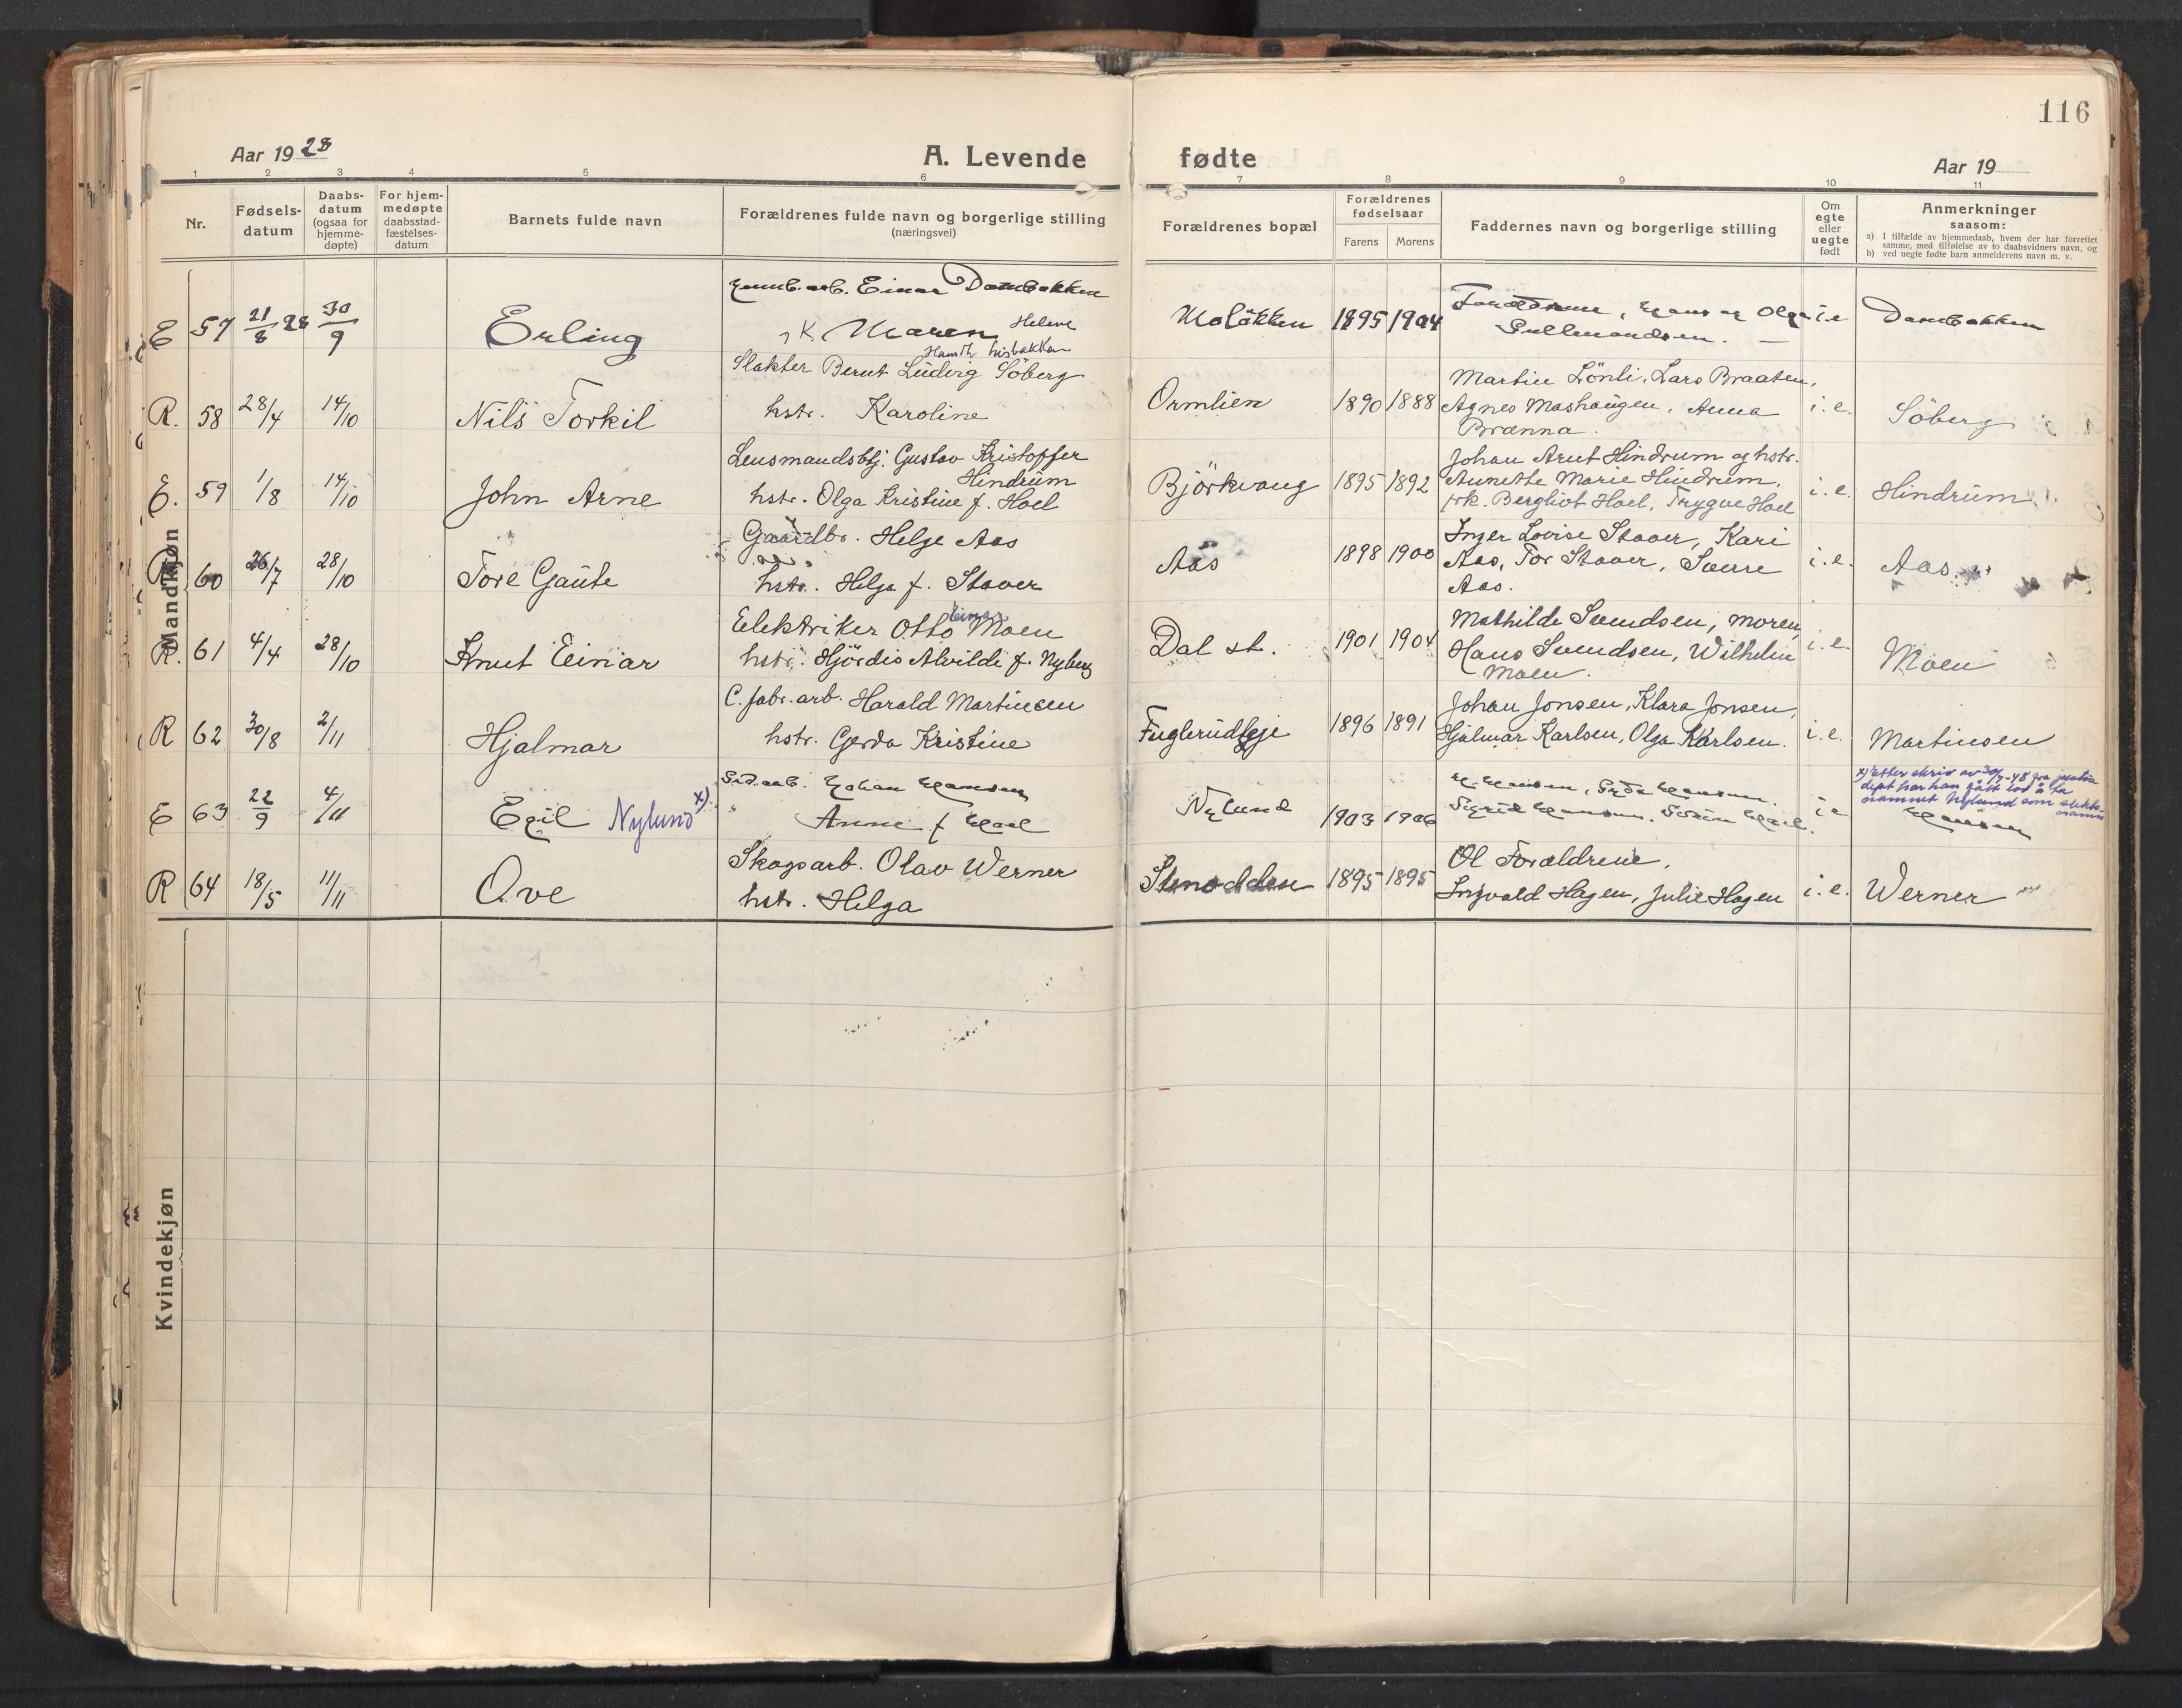 116
Aar 1928
A. Levende fødte
Aar 19
1 2 3 4 5 6 7 8 9 10 11
Nr.
Fødsels-
datum
Daabs-
datum
(ogsaa for
hjemme-
døpte)
For hjem-
medøpte
daabsstad-
fæstelses-
datum
Barnets fulde navn
Forældrenes fulde navn og borgerlige stilling
(næringsvei)
Forældrenes bopæl
Forældrenes
fødselsaar
Farens Morens
Faddernes navn og borgerlige stilling
Om
egte
eller
uegte
født
Anmerkninger
saasom:
a) I tilfælde av hjemmedaab, hvem der har forrettet
samme, med tilføielse av to daabsvidners navn, og
b) ved uegte fødte barn anmelderens navn m. v.
Mandkjøn
E 57 21/8 28 30/9 Erling
Einar Dambakken
K Maren Helene
Moløkken 1895 1904
Forældrene, Hans og Olga
Gulbrandsen.
i.e Dambakken
R. 58 28/4 14/10 Nils Torkil
Slakter Bernt Ludvig Söberg
hstr. Karoline
Ormlien 1890 1888
Martin Lönli, Lars Braaten,
Agnes Mashaugen, Anna
Brænna.
i.e. Söberg
E. 59 1/8 14/10 John Arne
Lensmandsbtj. Gustav Kristoffer
Hindrum
hstr. Olga Kristine f. Hoel
Björkvang 1895 1892
Johan Arnt Hindrum og hstr.
Annette Marie Hindrum,
frk. Bergliot Hoel, Trygve Hoel
i.e. Hindrum
R 60 26/7 28/10 Tore Gaute
Gaardbr. Helge Aas
hstr. Helga f. Staver
Aas 1898 1900
Inger Lovise Staver, Kari
Aas, Tor Staver, Sverre
Aas.
i.e. Aas
R. 61 4/4 28/10 Knut Einar
Elektriker Otto Einar Moen
hstr. Hjördis Alvilde f. Nyberg
Dal st. 1901 1904
Mathilde Svendsen, moren,
Hans Svendsen, Wilhelm
Moen.
i.e. Moen
R 62 30/8 2/11 Hjalmar
C. fabr. arb. Harald Martinsen
hstr. Gerda Kristine
Fuglerudeje 1896 1891
Johan Jonsen, Klara Jonsen,
Hjalmar Karlsen, Olga Karlsen.
i.e. Martinsen
E 63 22/9 4/11 Egil Nylund x)
Johan Hansen
Anne f
Nylund 1903 1906
Hansen, Hansen.
Sigrid Hansen,
i e
x) Etter skriv av 30/7-48 fra justis
dept har han fått lov å ta
namnet Nylund som slekts-
namn
Hansen
R 64 18/5 11/11 Ove
Skogsarb. Olav Werner
hstr. Helga
Stenodden 1895 1895
Forældrene,
Ingvald Hagen, Julie Hagen
i.e. Werner
Kvindekjøn